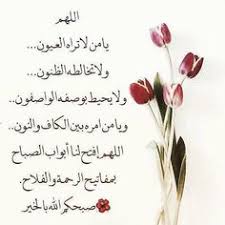 اللهم
يامن لاتراه العيون...
ولاتخالطه الظنون...
ولا يحيط بوصفه الواصفون..
ويامن امره بين الكاف والنون..
اللهم إفتح لنا أبواب الصباح
بمفاتيح الرحمة والفلاح.
صبحكم الله بالخير